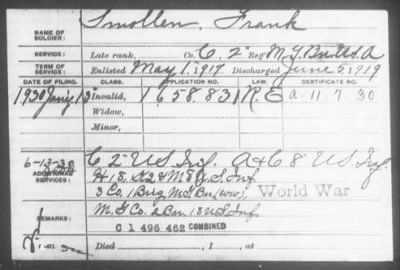 NAME OF SOLDIER: Smollen, Frank
SERVICE: Late rank, Co. C, 2" Reg M.G. Bn. U.S.A
TERM OF SERVICE: Enlisted May 1, 1917 Discharged June 5, 1919
DATE OF FILING. CLASS. APPLICATION NO. LAW. CERTIFICATE NO.
1930 Invalid, 1658831 R.E A-11 7 30
Widow,
Minor,
6-13-30 C 2" U.S. Inf. A & C 8" U.S. Inf.
ADDITIONAL SERVICES: H 18, K 2 & M 8 U.S. Inf
3 Co. 1 Brig M.G. Bn (WW) World War
REMARKS: M.G. Co. 2 Bn. 18 U.S. Inf.
C 1 496 462 COMBINED
Died , 1 , at